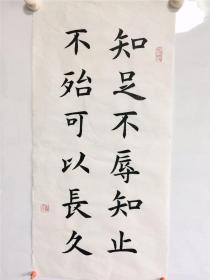 知足不辱知止
不殆可以長久